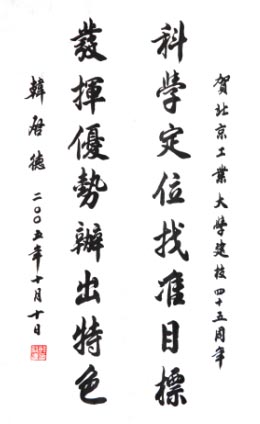 賀北京工業大學建校四十五周年
科學定位找准目標
發揮優勢辦出特色
韓启德 二〇〇五年十月十日